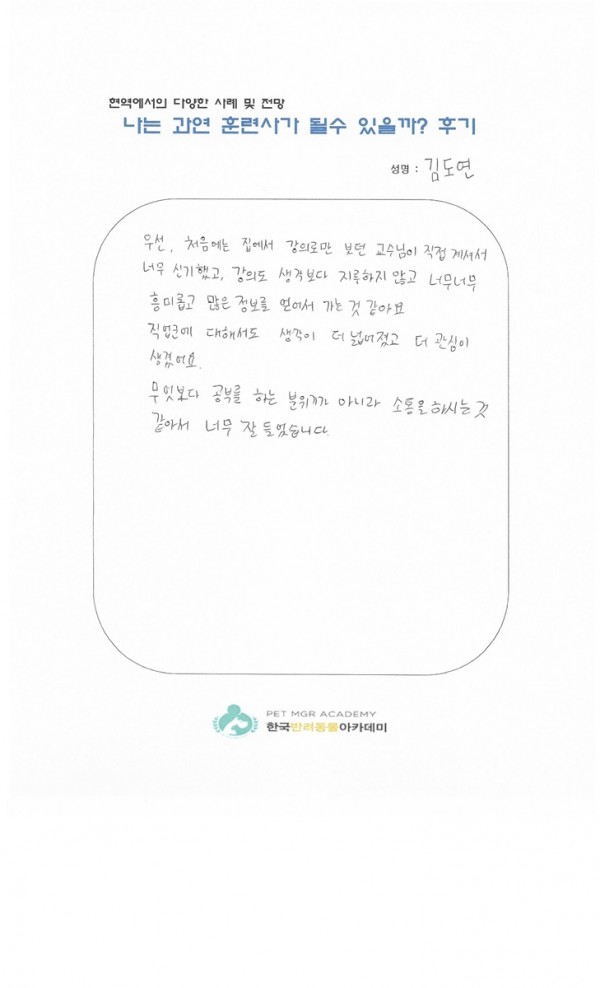 현역에서의 다양한 사례 및 전망
나는 과연 훈련사가 될수 있을까? 후기
성명 : 김도연
우선, 처음에는 집에서 강의로만 보던 교수님이 직접 계셔서
너무 신기했고, 강의도 생각보다 지루하지 않고 너무너무
흥미롭고 많은 정보를 얻어서 가는 것 같아요
직업군에 대해서도 생각이 더 넓어졌고 더 관심이
생겼어요.
무엇보다 공부를 하는 분위기가 아니라 소통을 하시는 것
같아서 너무 잘 들었습니다.
PET MGR ACADEMY
한국반려동물아카데미